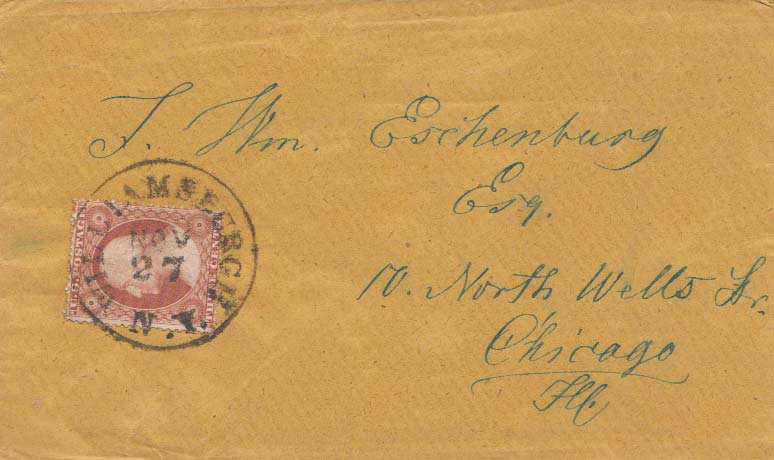 J. Wm. Eschenburg
Esq.
10. North Wells Str.
Chicago
Ills
WILLIAMSBURGH
NOV
27
N.Y.
U.S. POSTAGE
THREE CENTS